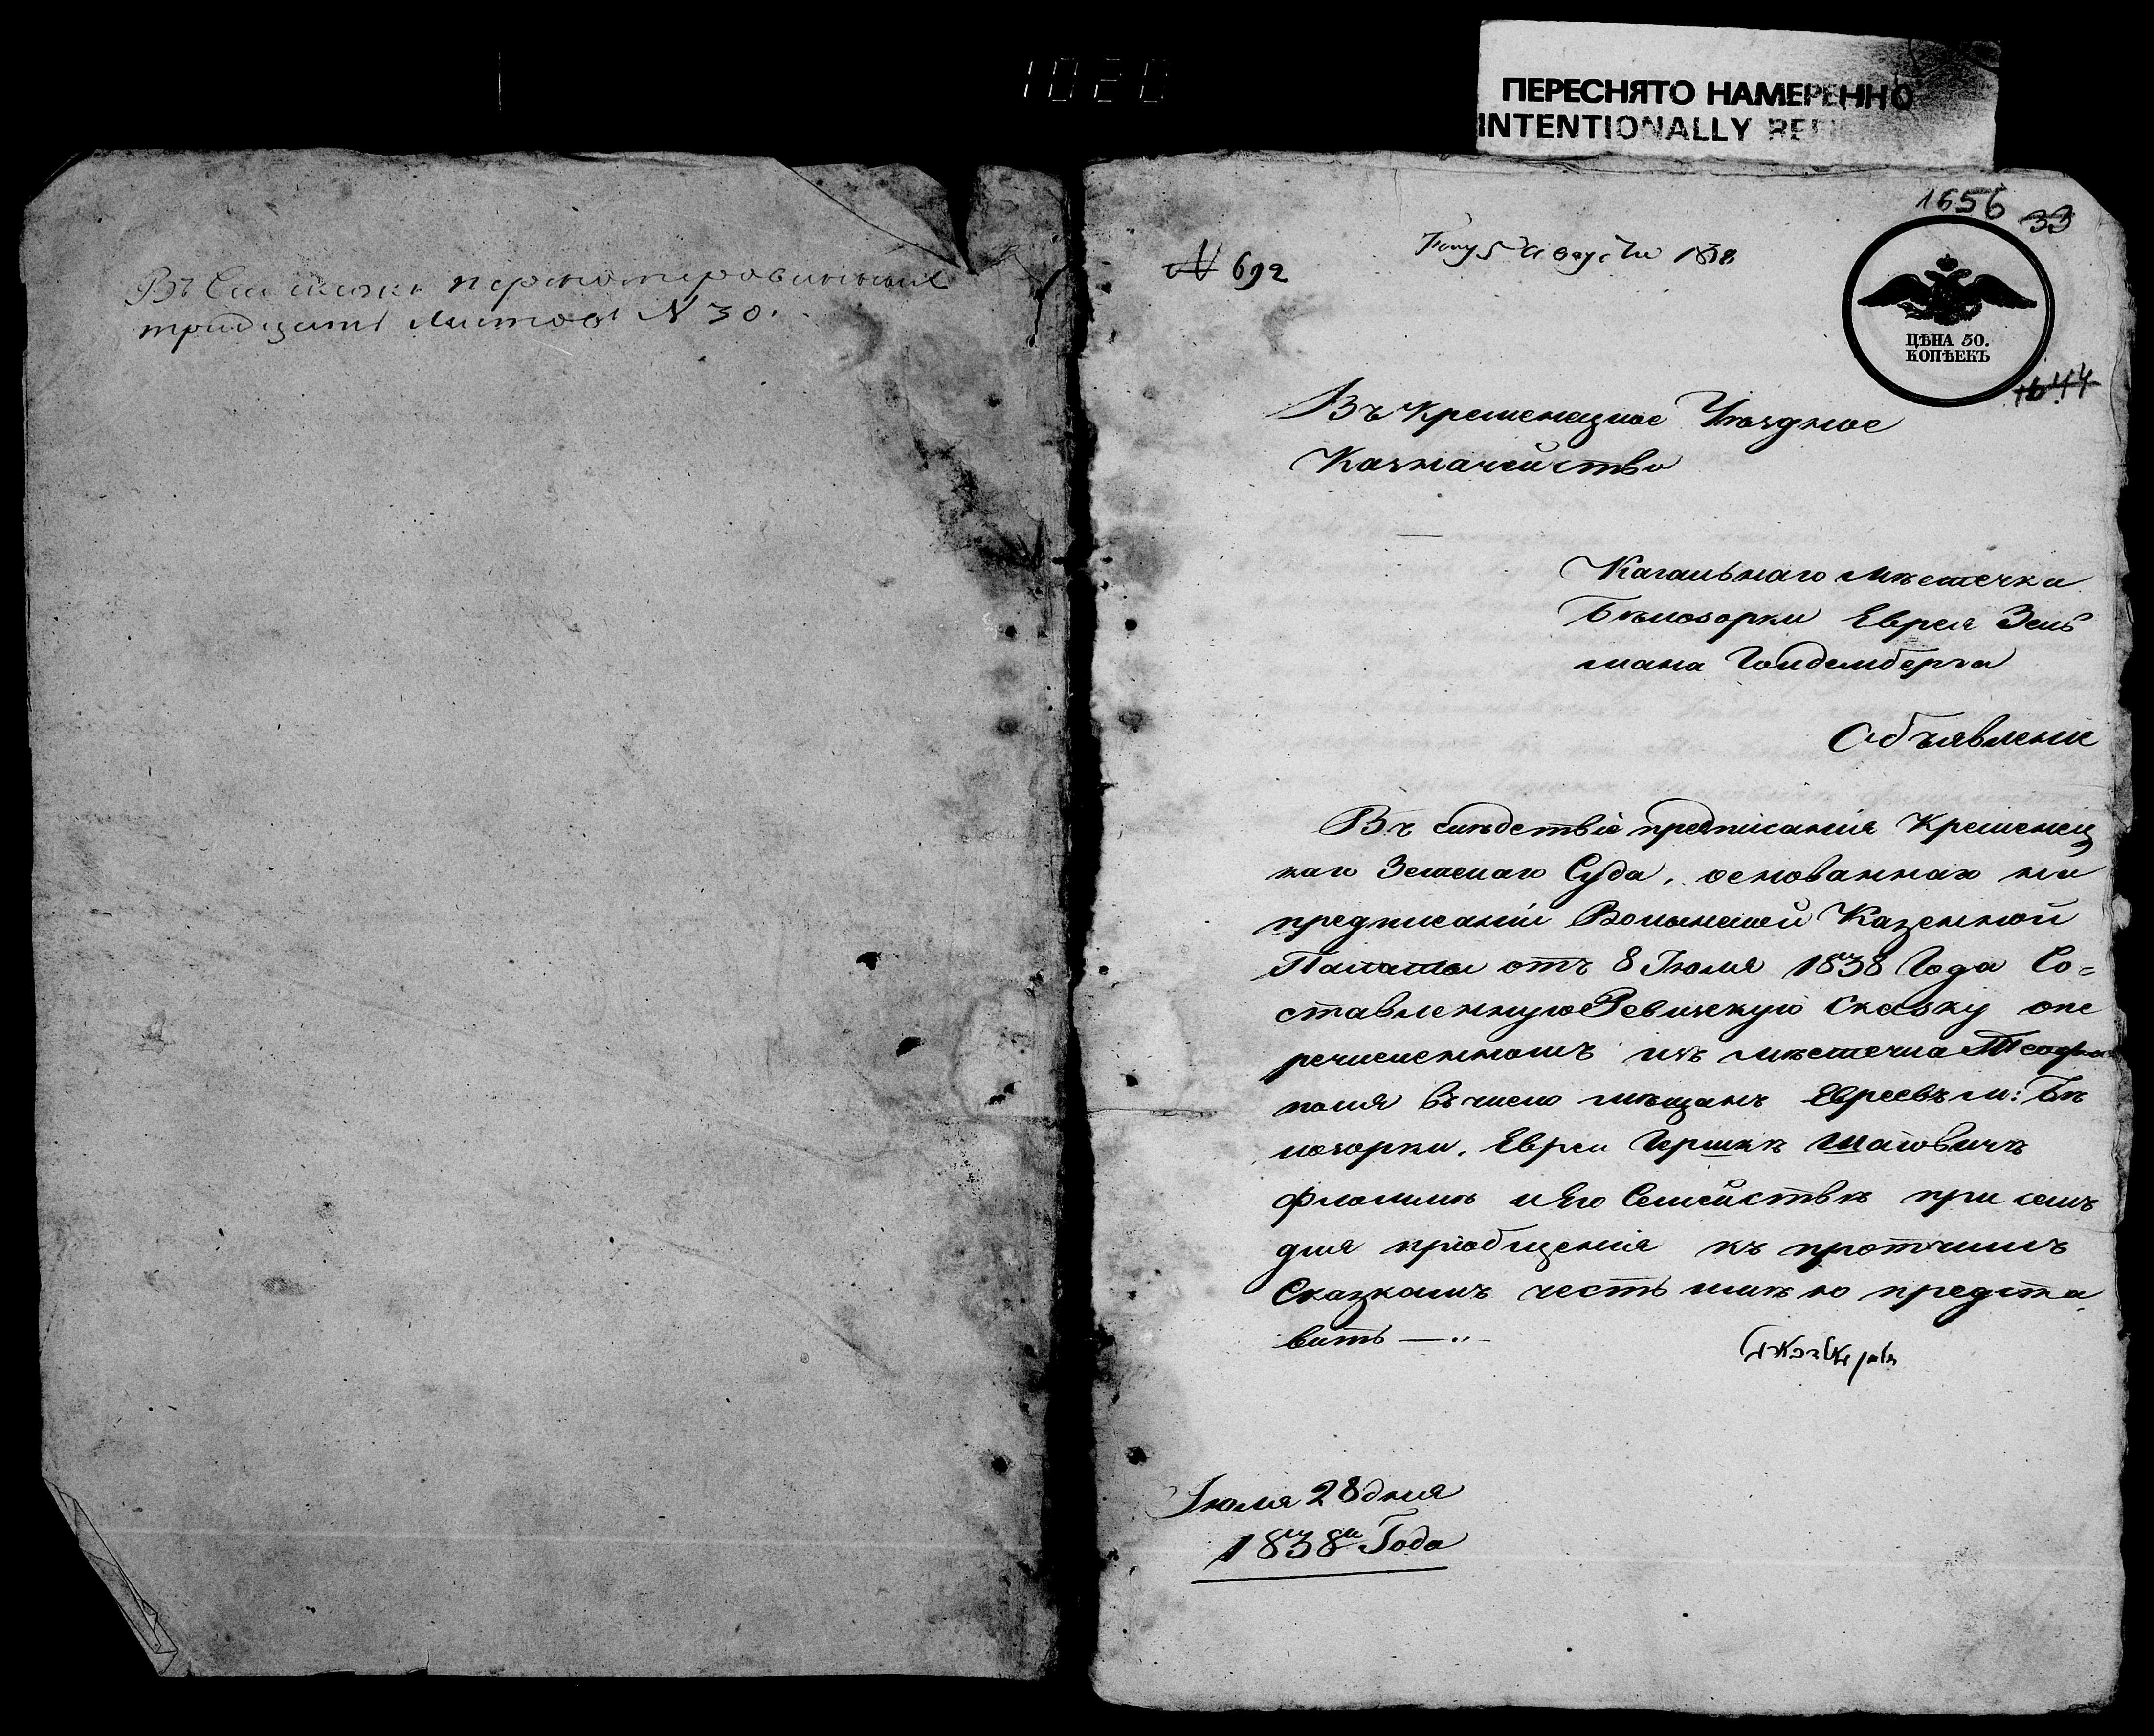 1020
ПЕРЕСНЯТО НАМЕРЕННО
INTENTIONALLY
Въ пернотерованныхъ
тридцать листовъ N 30.
1656 33
№ 692
5 Августа 1838
ЦѢНА 50.
КОПѢЕКЪ
1644
Въ Кременецкое Уѣздное
Казначейство
Кагальнаго мѣстечка
Бѣлозорки Еврея Зель
мана Гольдемберга
Объявленіе
Въ слѣдствіе предписанія Кременец
каго Земскаго Суда, основаннаго на
предписаніи Волынской Казенной
Палаты отъ 8 Іюля 1838 Года Со=
ставленную Ревизскую Сказку о пе
речисленномъ изъ мѣстечка Теофи
поля въ число мѣщанъ Евреевъ м: Бѣ
лозорки, Евреи Гершкѣ Шаговичѣ
и Его Семействѣ при семъ
для пріобщенія къ протчимъ
Сказкамъ честь имѣю предста
вить —..–
Іюля 28 дня
1838го Года